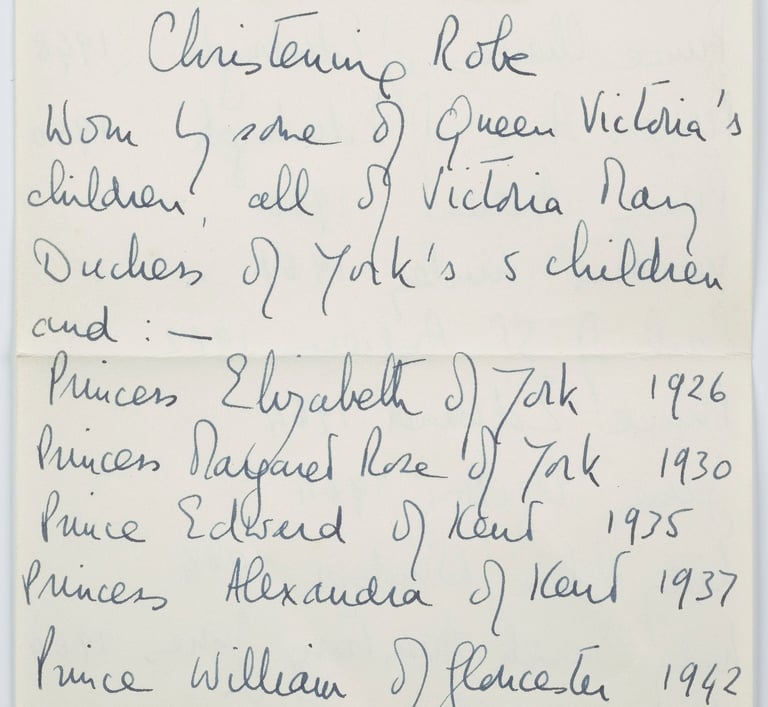 Christening Robe
Worn by some of Queen Victoria's
children, all of Victoria Mary
Duchess of York's 5 children
and : —
Princess Elizabeth of York 1926
Princess Margaret Rose of York 1930
Prince Edward of Kent 1935
Princess Alexandra of Kent 1937
Prince William of Gloucester 1942